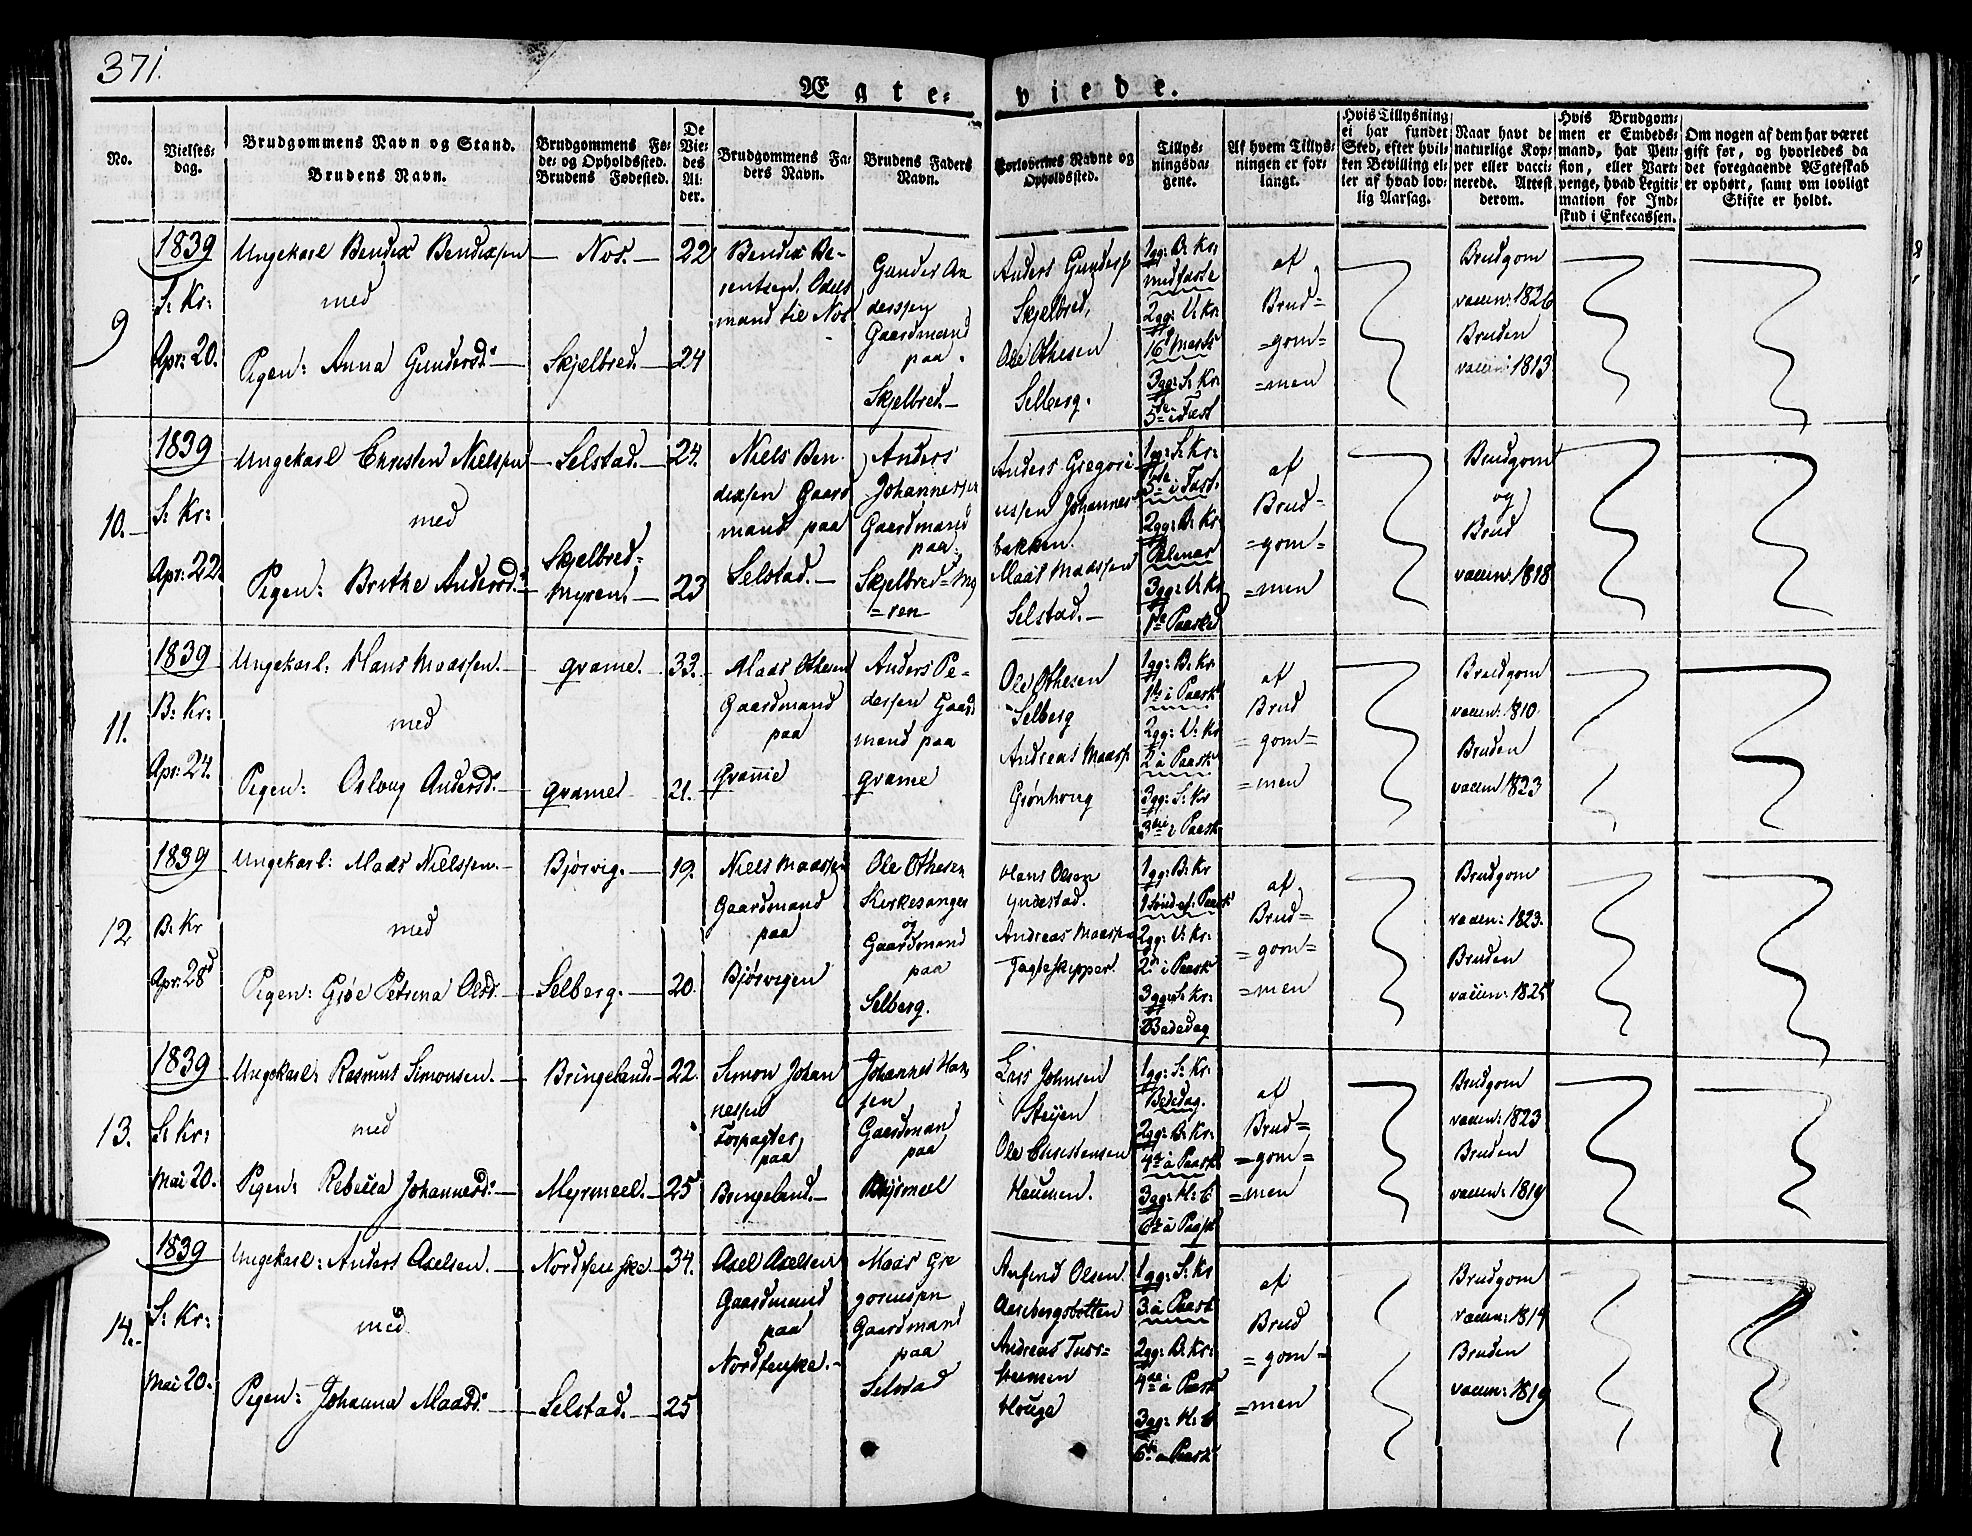 371.
Ægte-viede.
No.
Vielses-
dag.
Brudgommens Navn og Stand.
Brudens Navn.
Brudgommens Fø-
de- og Opholdssted.
Brudens Fødested.
De
Vie-
des
Al-
der.
Brudgommens Fa-
ders Navn.
Brudens Faders
Navn.
Forlovernes Navne og
Opholdssted.
Tillys-
ningsda-
gene.
Af hvem Tillys-
ningen er for-
langt.
Hvis Tillysning
ei har fundet
Sted, efter hvil-
ken Bevilling el-
ler af hvad lov-
lig Aarsag.
Naar havt de
naturlige Kop-
per eller vacci-
nerede. Attest
derom.
Hvis Brudgom-
men er Embeds-
mand, har Pen-
sion, eller Vart-
penge, hvad Legiti-
mation for Ind-
skud i Enkecassen.
Om nogen af dem har været
gift før, og hvorledes da
det foregaaende Ægteskab
er ophørt, samt om lovligt
Skifte er holdt.
9
1839
S: Kr:
Apr: 20.
Ungekarl Bendix Bendixsen
med
Pigen: Anna Gundersd:
Nos.
Skjelbred.
22
24
Bendix Be-
rentsen. Odels
mand til Nos
Gunder An
derssen
Gaardmand
paa
Skjelbred.
Anders Gunders:
Skjelbred,
Ole Othesen
Selberg.
1gg: B: Kr:
midfaste
2gg: V: Kr:
16 Marts
3gg: S: Kr:
5te i Fast
af
Brud=
=gom=
=men
Brudgom
vaccin: 1826
Bruden
vaccin: 1813
10.
1839
S: Kr:
Apr: 22
Ungekarl Christen Nielsen
med
Pigen: Brithe Andersd:
Selstad.
Skjelbred=
Myren.
24.
23
Niels Ben
dixsen Gaard
mand paa
Selstad.
Anders
Johannessen
Gaardmand
paa
Skjelbred=My
=ren
Anders Gregori
ussen Johannes
bakken.
Maas Maassen
Selstad.
1gg: S: Kr:
5te i Fast.
2gg: B: Kr
Palmar
3gg: V: Kr
1te Paasked
af
Brud=
=gom=
=men
Brudgom
og
Brud
vaccin: 1818
11.
1839
B: Kr:
Apr: 24.
Ungekarl: Hans Maassen.
med
Pigen: Oslaug Andersd:
Grame.
Grame
33.
21.
Maas Othesen
Gaardmand
paa
Grame
Anders Pe-
dersen Gaard
mand paa
Grame
Ole Othesen
Selberg
Andreas Maass:
Grønhoug
1gg: B: Kr
1te i Paask
2gg: V: Kr
2 i Paask
3gg: S: Kr
3die i Paask
af
Brud
=gom=
=men
Brudgom
vaccin: 1810
Bruden
vaccin 1823
12
1839
B: Kr
Apr: 28
Ungekarl: Mads Nielssen.
med
Pigen: Grøe Petrina Olsd:
Bjørvig.
Selberg.
19.
20.
Niels Maassen
Gaardmand
paa
Bjørvigen
Ole Othesen
Kirkesanger
og
Gaardmand
paa
Selberg.
Hans Olsen
Yndestad.
Andreas Maassen
Jagteskipper.
1gg: B: Kr
1 Sønd. ef: Paask
2gg: V: Kr:
2n i Paask
3gg: S: Kr:
Bededag
af
Brud=
=gom=
=men
Brudgom
vaccin: 1823.
Bruden
vaccin: 1825
13.
1839
S: Kr:
Mai 20.
Ungekarl: Rasmus Simonsen.
med
Pigen: Rebecca Johannesd:
Bringeland.
Myrmeel.
22.
25
Simon Johan
nessen
Forpagter
paa
Bringeland.
Johannes Han
sen
Gaardman
paa
Myrmeel
Lars Johnsen
Steijen
Ole Christensen
Houmen.
1gg: S: Kr.
Bededag.
2gg: B: Kr:
4de i Paask
3gg: H: C
6te a Paask
af
Brud=
=gom=
=men
Brudgom
vaccin: 1823
Bruden
vaccin: 1819
14.
1839
S: Kr:
Mai 20.
Ungekarl: Anders Axelsen.
med
Pigen: Johanna Maasd:
Nordfenske
Selstad.
34.
25
Axel Axelsen
Gaardmand
paa
Nordfenske.
Maas Gre
goriussen
Gaardmand
paa
Selstad
Anfind Olsen
Aasebergsbotten
Andreas
Houge
1gg: S: Kr
3 a Paask
2gg: B: Kr:
4de i Paask
3gg: H: C
6te a Paask
af
Brud
=gom=
=men
Brudgom
vaccin: 1819
Bruden
vaccin: 1819